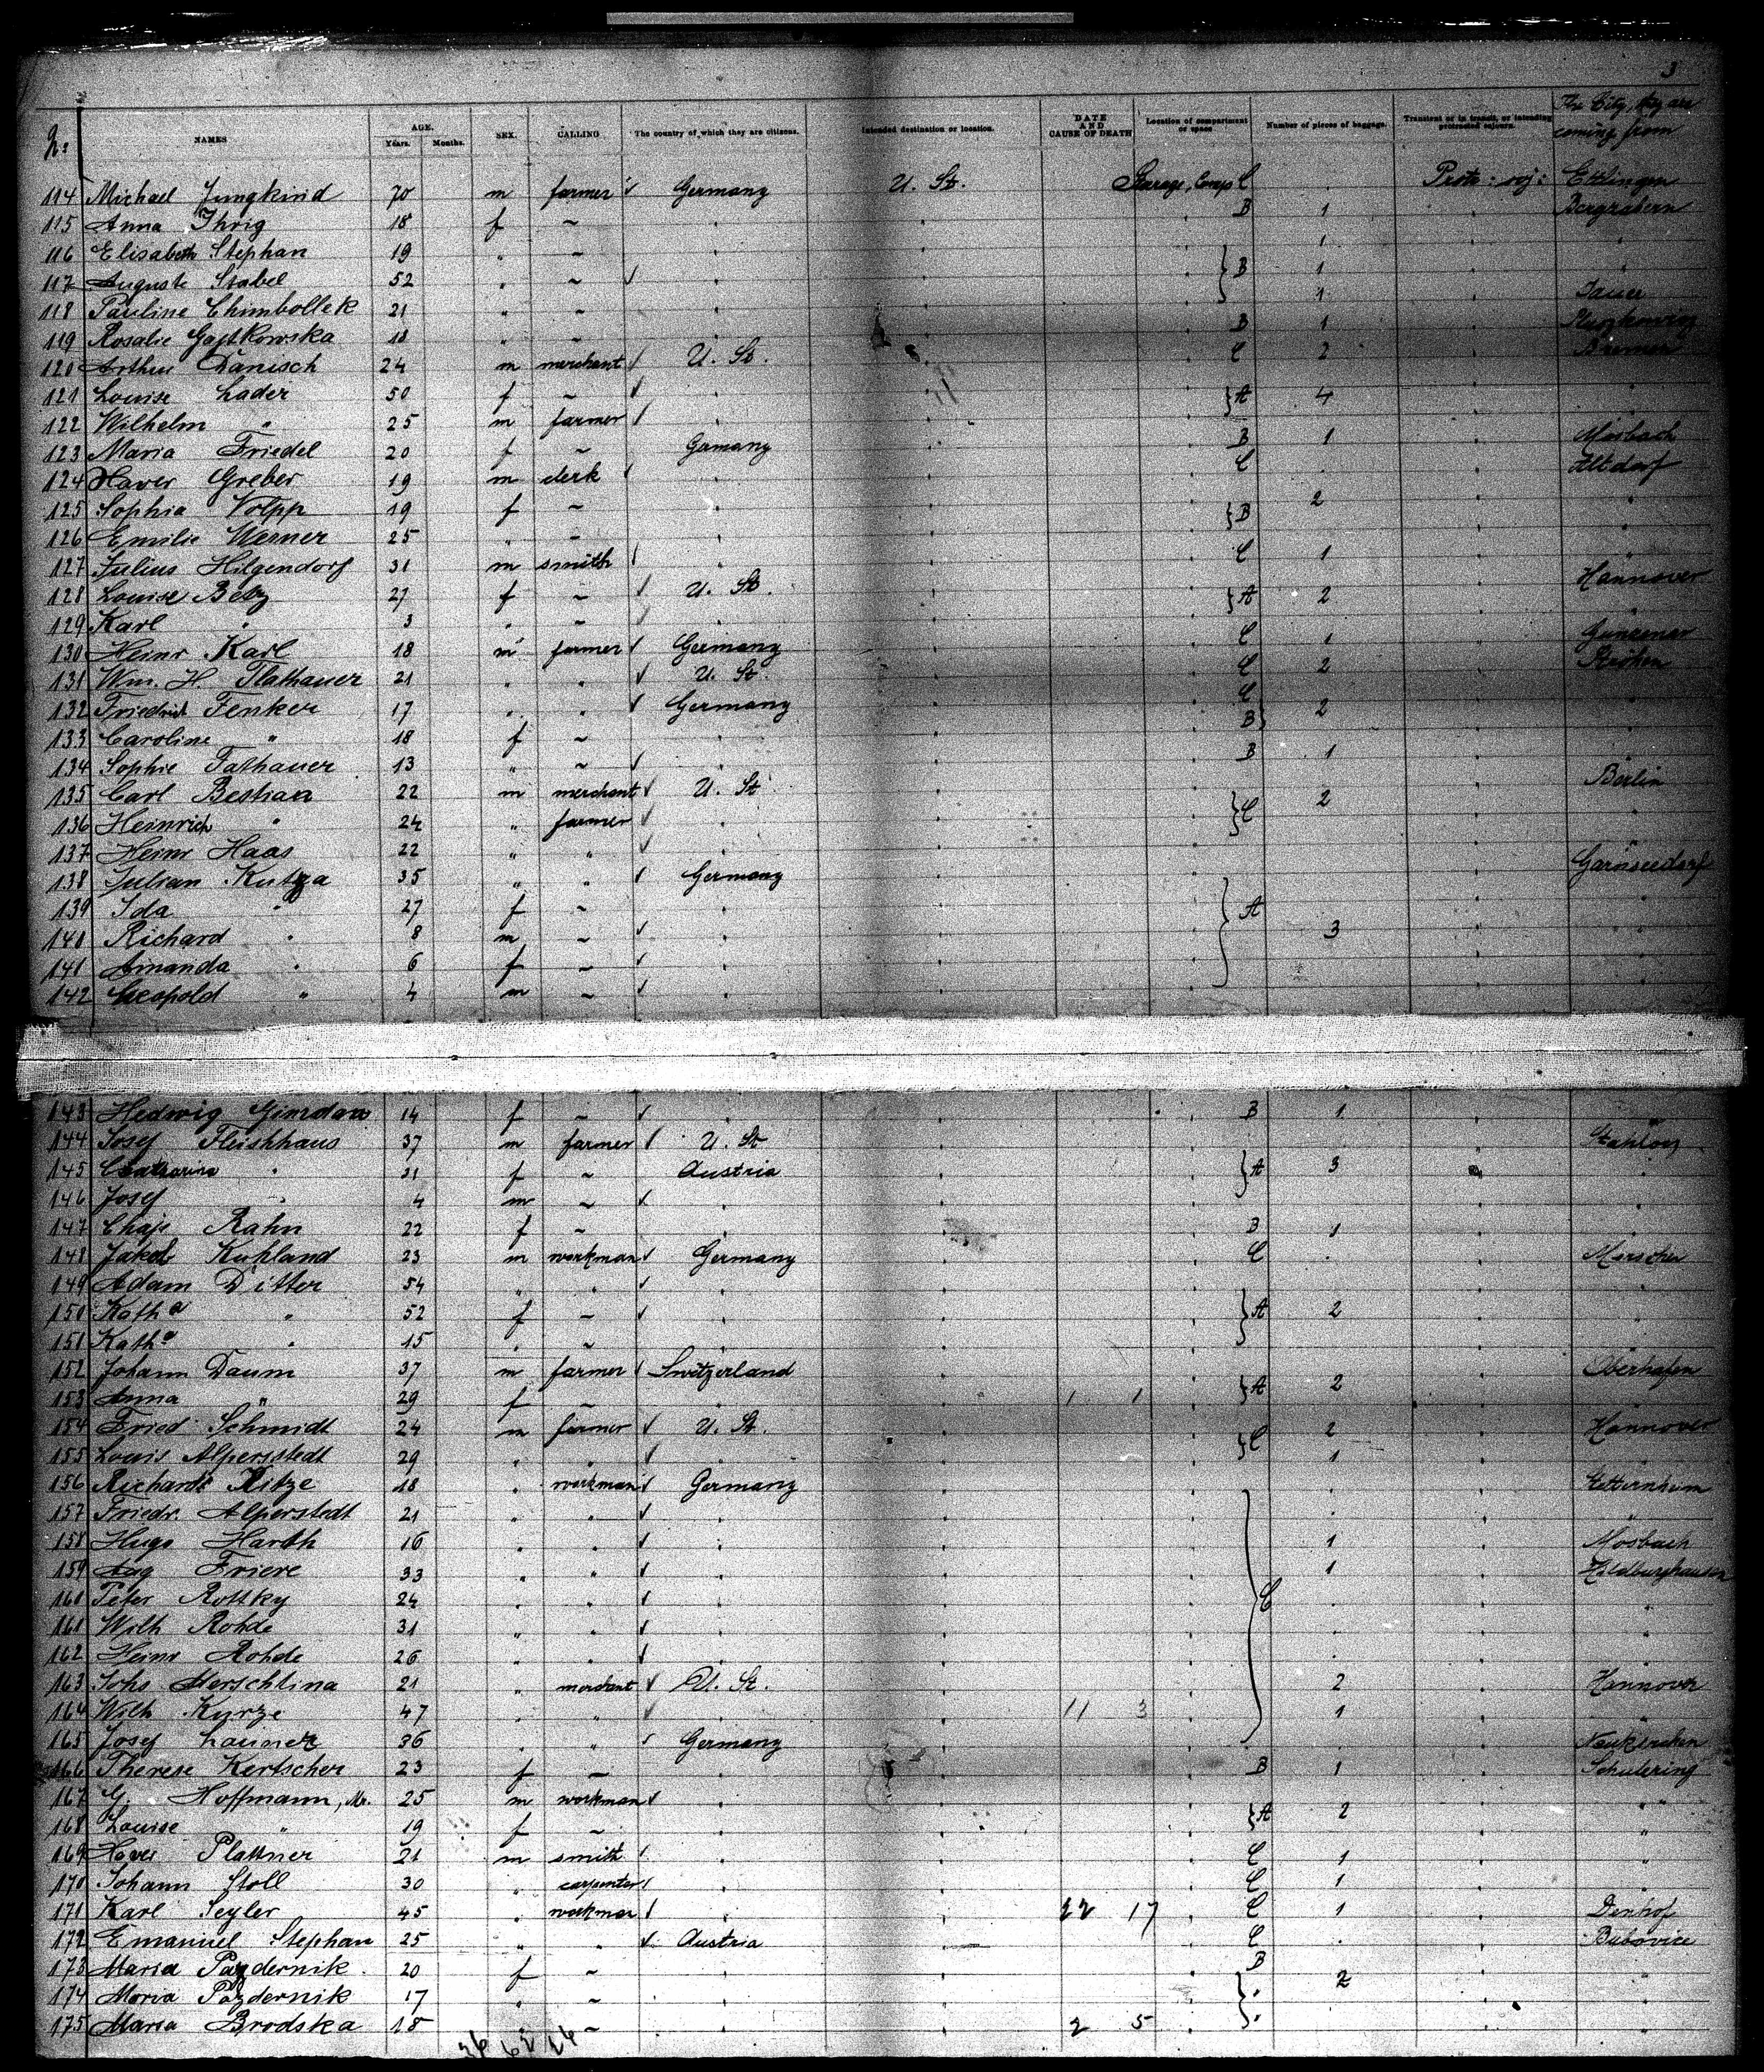 3
No: NAMES AGE. Years. Months. SEX. CALLING The country of which they are citizens. Intended destination or location. DATE AND CAUSE OF DEATH Location of compartment or space Number of pieces of baggage. Transient or in transit, or intending protracted sojourn. The City, they are coming from
114 Michael Jungkind 70 m farmer Germany U. St. Steerage, Comp C Protr: soj: Ettlingen
115 Anna Ihrig 18 f ~ B 1 Bergzabern
116 Elisabeth Stephan 19 " ~ 1 "
117 Auguste Stabel 52 " ~ B 1 "
118 Pauline Chimbollek 21 " ~ 1 Jauer
119 Rosalie Gajtkowska 18 " ~ B 1
120 Arthur Danisch 24 m merchant U. St. C 2 Bremen
121 Louise Lader 50 f ~ A 4 "
122 Wilhelm " 25 m farmer
123 Maria Friedel 20 f ~ Germany B 1 Mosbach
124 Xaver Greber 19 m clerk C Altdorf
125 Sophia Volpp 19 f ~ B 2 "
126 Emilie Werner 25 " ~ "
127 Julius Hilgendorf 31 m smith C 1 "
128 Louise Betz 27 f ~ U. St. A 2 Hannover
129 Karl " 3 " ~ "
130 Heinr Karl 18 m farmer Germany C 1
131 Wm. H. Flathauer 21 " " U. St. C 2
132 Friedrich Fenker 17 " " Germany C 2 "
133 Caroline " 18 f ~ B "
134 Sophie Tathauer 13 " ~ B 1 "
135 Carl Bestian 22 m merchant U. St. C 2 Berlin
136 Heinrich " 24 " farmer "
137 Heinr Haas 22 " " "
138 Julian Kutza 35 " " Germany A Garnseedorf
139 Ida " 27 f ~ "
140 Richard " 8 m ~ 3 "
141 Amanda " 6 f ~ "
142 Leopold " 4 m ~ "
143 Hedwig Gimdan 14 f ~ B 1 "
144 Josef Fleishhaus 37 m farmer U. St
145 Catharina " 31 f ~ Austria A 3 "
146 Josef " 4 m ~ "
147 Chaje Rahn 22 f ~ B 1 "
148 Jakob Kuhland 23 m workman Germany C
149 Adam Ditter 54 " " "
150 Katha " 52 f ~ A 2 "
151 Katha " 15 " ~ "
152 Johann Daum 37 m farmer Switzerland Oberhafen
153 Anna " 29 f ~ 1 1 A 2 "
154 Fried. Schmidt 24 m farmer U. St. C 2 Hannover
155 Louis Alperstedt 29 " " 1 "
156 Richard Kitze 18 " workman Germany
157 Friedr. Alperstedt 21 " " "
158 Hugo Harth 16 " " 1 Mosbach
159 Aug Friere 33 " " 1 Hildburghausen
160 Peter Rottky 24 " " C "
161 Wilh Rohde 31 " " "
162 Heinr Rohde 26 " " "
163 Johs Herschlina 21 " merchant U. St. 2 Hannover
164 Wilh Kurze 47 " " 11 3 1 "
165 Josef Launer 36 " " Germany Neukirchen
166 Therese Kertscher 23 f ~ B 1 Schutering
167 G. Hoffmann, Mr. 25 m workman A 2 "
168 Louise " 19 f ~ "
169 Xaver Plattner 21 m smith C 1 "
170 Johann Stoll 30 " carpenter C 1 "
171 Karl Seyler 45 " workman 22 17 C 1 Denhof
172 Emanuel Stephan 25 " " Austria C Bubovice
173 Maria Pazdernik 20 f ~ B 2 "
174 Maria Pazdernik 17 " ~ "
175 Maria Brodska 18 " ~ 2 5 "